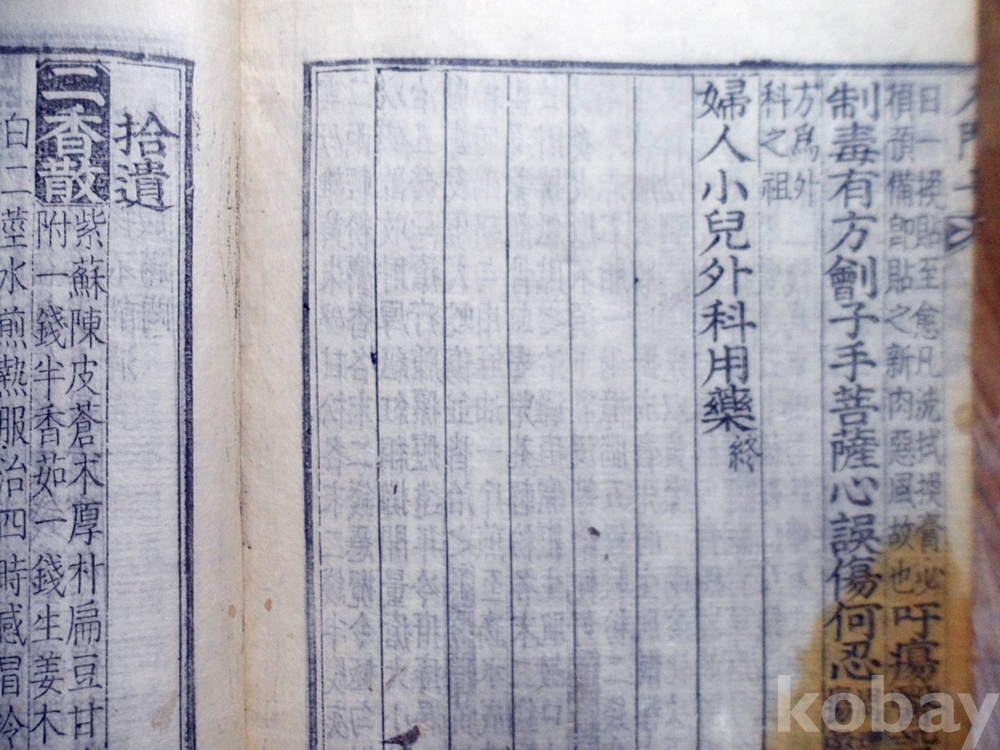 日一換貼至愈凡洗拭換膏必
預備卽貼之新肉惡風故也吁瘍
制毒有方劊子手菩薩心誤傷何忍
方爲外
科之祖
婦人小兒外科用藥終
拾遺
二香散紫蘇陳皮蒼朮厚朴扁豆甘
附一錢半香茹一錢生姜木
二莖水煎熱服治四時感冒冷
kobay